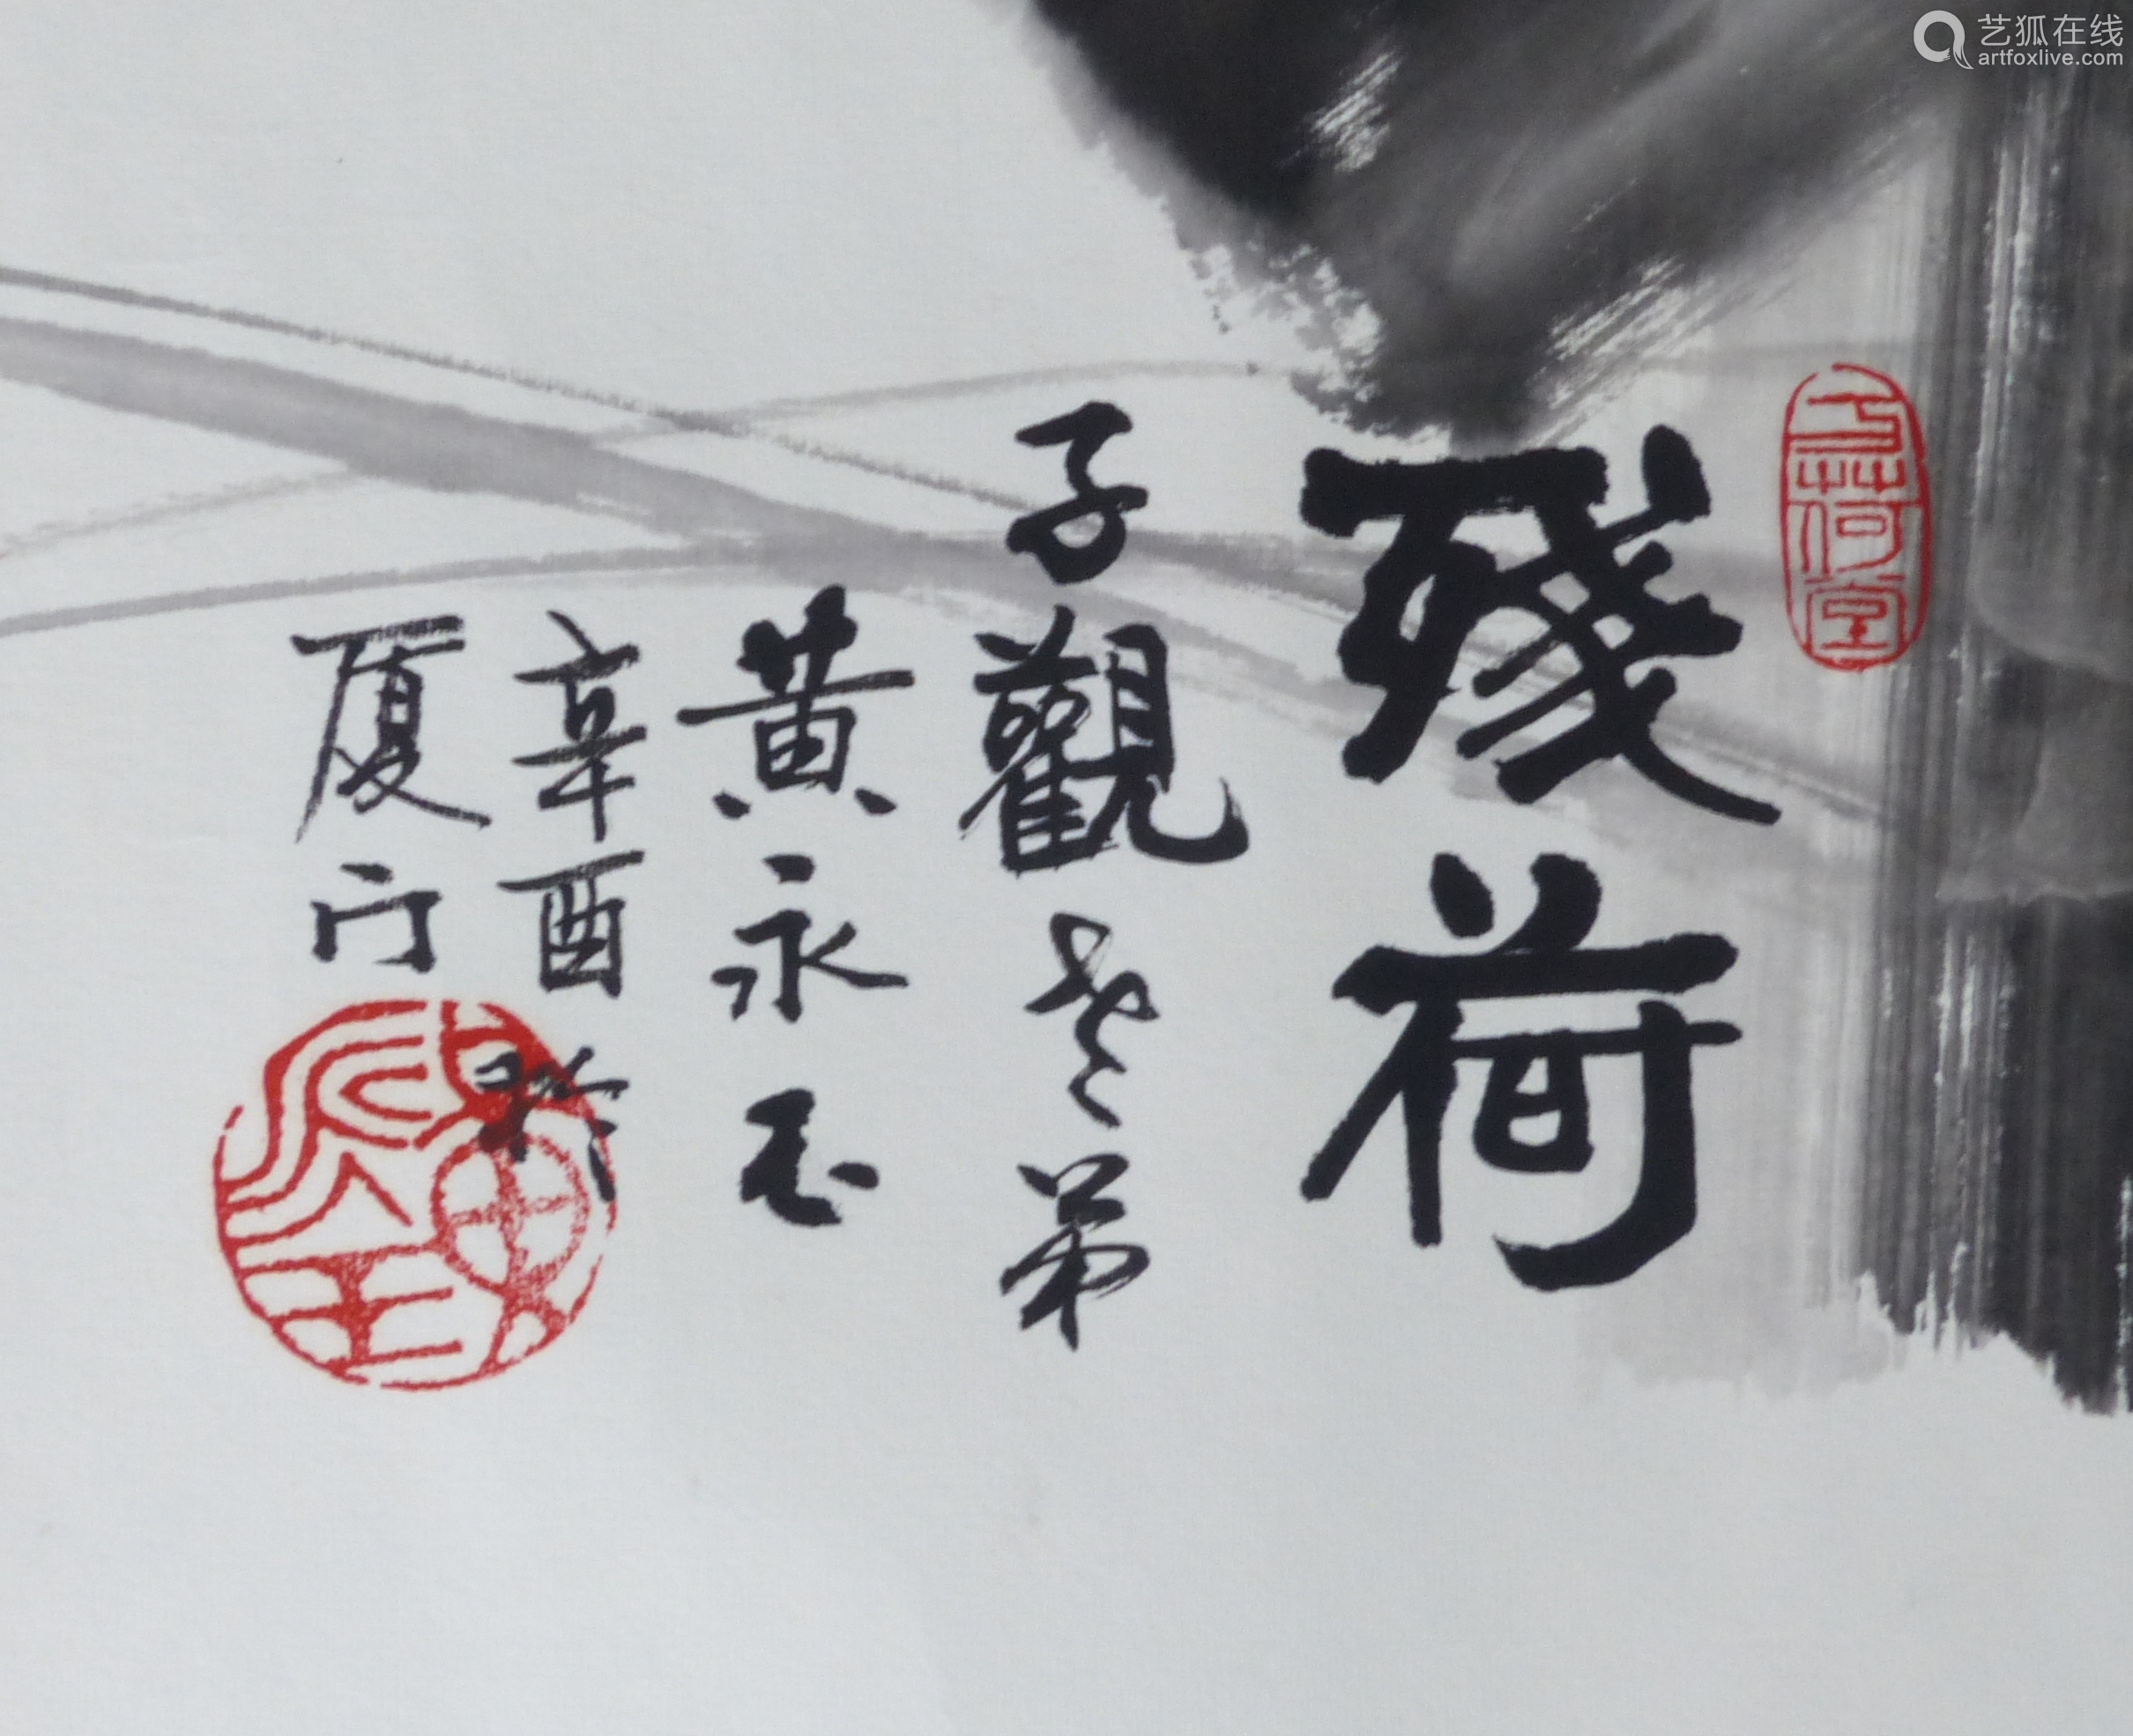 殘荷
子觀老弟
黃永玉
辛酉於
厦门
万荷堂
艺狐在线
artfoxlive.com